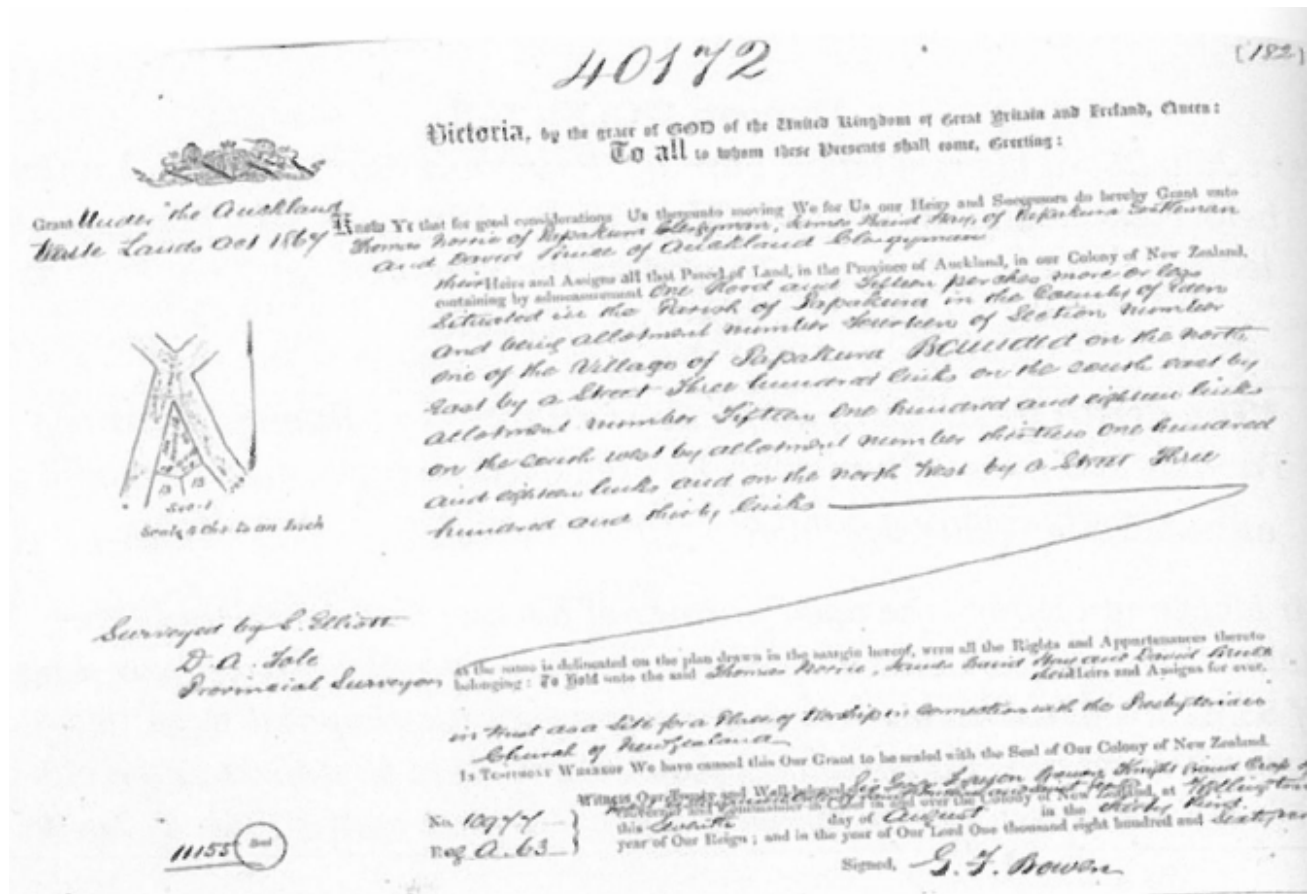 40172
[182]
Victoria, by the grace of GOD of the United Kingdom of Great Britain and Ireland, Queen:
To all to whom these Presents shall come, Greeting:
Grant Under the Auckland
Waste Lands Act 1867
Know Ye that for good considerations Us thereunto moving We for Us our Heirs and Successors do hereby Grant unto
Thomas Norrie of Papakura Clergyman, James Baird Hay, of Papakura Gentleman
and David Bruce of Auckland Clergyman
their Heirs and Assigns all that Parcel of Land, in the Province of Auckland, in our Colony of New Zealand,
containing by admeasurement One Rood and Fifteen perches more or less
Situated in the Parish of Papakura in the County of Eden
and being allotment number Fourteen of Section number
one of the Village of Papakura Bounded on the north
East by a Street Three hundred links on the south east by
allotment number Fifteen One hundred and eighteen links
on the south west by allotment number thirteen One hundred
and eighteen links and on the north West by a Street Three
hundred and thirty links
13
15
Sec. 1
Scale 4 Chs to an Inch
Surveyed by S. Elliott
D. A. Tole
Provincial Surveyor
as the same is delineated on the plan drawn in the margin hereof, with all the Rights and Appurtenances thereto
belonging: To Hold unto the said Thomas Norrie, James Baird Hay and David Bruce
their Heirs and Assigns for ever,
in trust as a Site for a Place of Worship in connection with the Presbyterian
Church of New Zealand
In Testimony Whereof We have caused this Our Grant to be sealed with the Seal of Our Colony of New Zealand.
Witness Our Trusty and Well-beloved Sir George Bowen Knight Grand Cross of
in and over the Colony of New Zealand, at Wellington
this day of August in the thirty third
year of Our Reign; and in the year of Our Lord One thousand eight hundred and Sixty nine
No. 10977
Reg A. 63
11155
Seal
Signed, G. F. Bowen